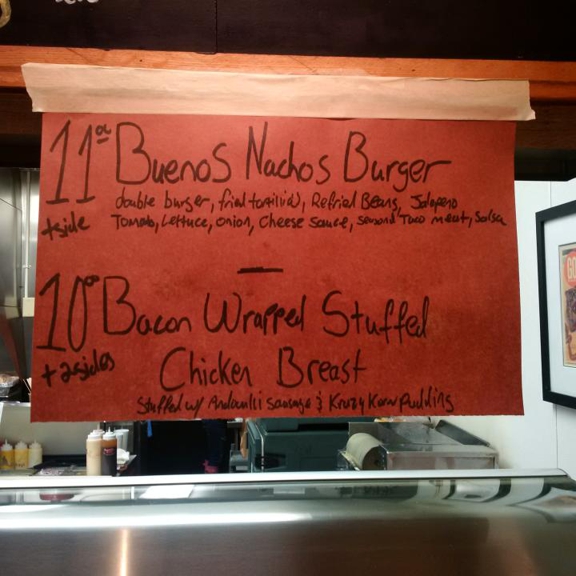 11.00 Buenos Nachos Burger
+side double burger, fried tortilla, Refried Beans, Jalapeno
Tomato, Lettuce, onion, Cheese Sauce, Taco meat, Salsa
10.00 Bacon Wrapped Stuffed
+2sides Chicken Breast
Stuffed w/ Andouilli Sausage & Krazy Korn Pudding